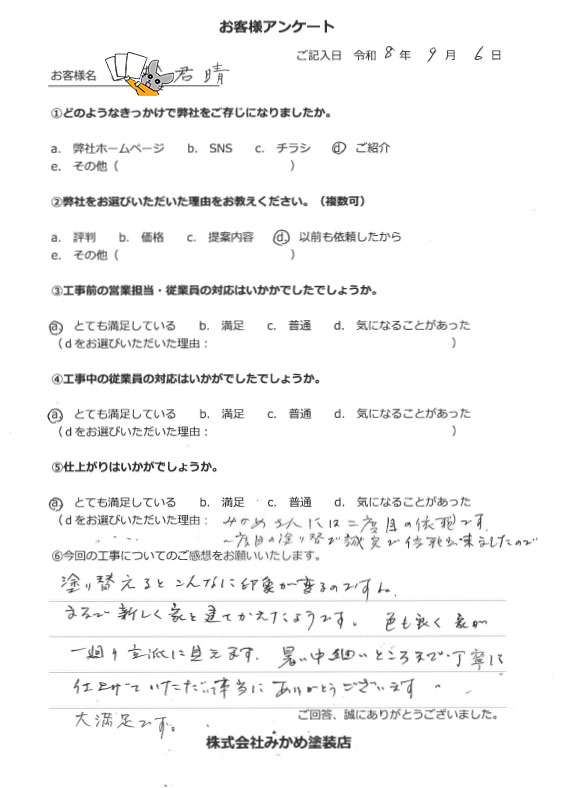 お客様アンケート
ご記入日 令和 8 年 9 月 6 日
お客様名 君晴
①どのようなきっかけで弊社をご存じになりましたか。
a. 弊社ホームページ b. SNS c. チラシ d. ご紹介
e. その他（ ）
②弊社をお選びいただいた理由をお教えください。（複数可）
a. 評判 b. 価格 c. 提案内容 d. 以前も依頼したから
e. その他（ ）
③工事前の営業担当・従業員の対応はいかかでしたでしょうか。
a. とても満足している b. 満足 c. 普通 d. 気になることがあった
（ｄをお選びいただいた理由： ）
④工事中の従業員の対応はいかがでしたでしょうか。
a. とても満足している b. 満足 c. 普通 d. 気になることがあった
（ｄをお選びいただいた理由： ）
⑤仕上がりはいかがでしょうか。
a. とても満足している b. 満足 c. 普通 d. 気になることがあった
（ｄをお選びいただいた理由： みかめさんには二度目の依頼です。
一度目の塗り替で誠実で信頼出来ましたので
⑥今回の工事についてのご感想をお願いいたします。
塗り替えるとこんなに印象が変るのですね。
まるで新しく家を建てかえたようです。 色も良く 家が
一廻り立派に見えます。暑い中細いところまで丁寧に
仕上げていただい本当にありがとうございます
大満足です。 ご回答、誠にありがとうございました。
株式会社みかめ塗装店